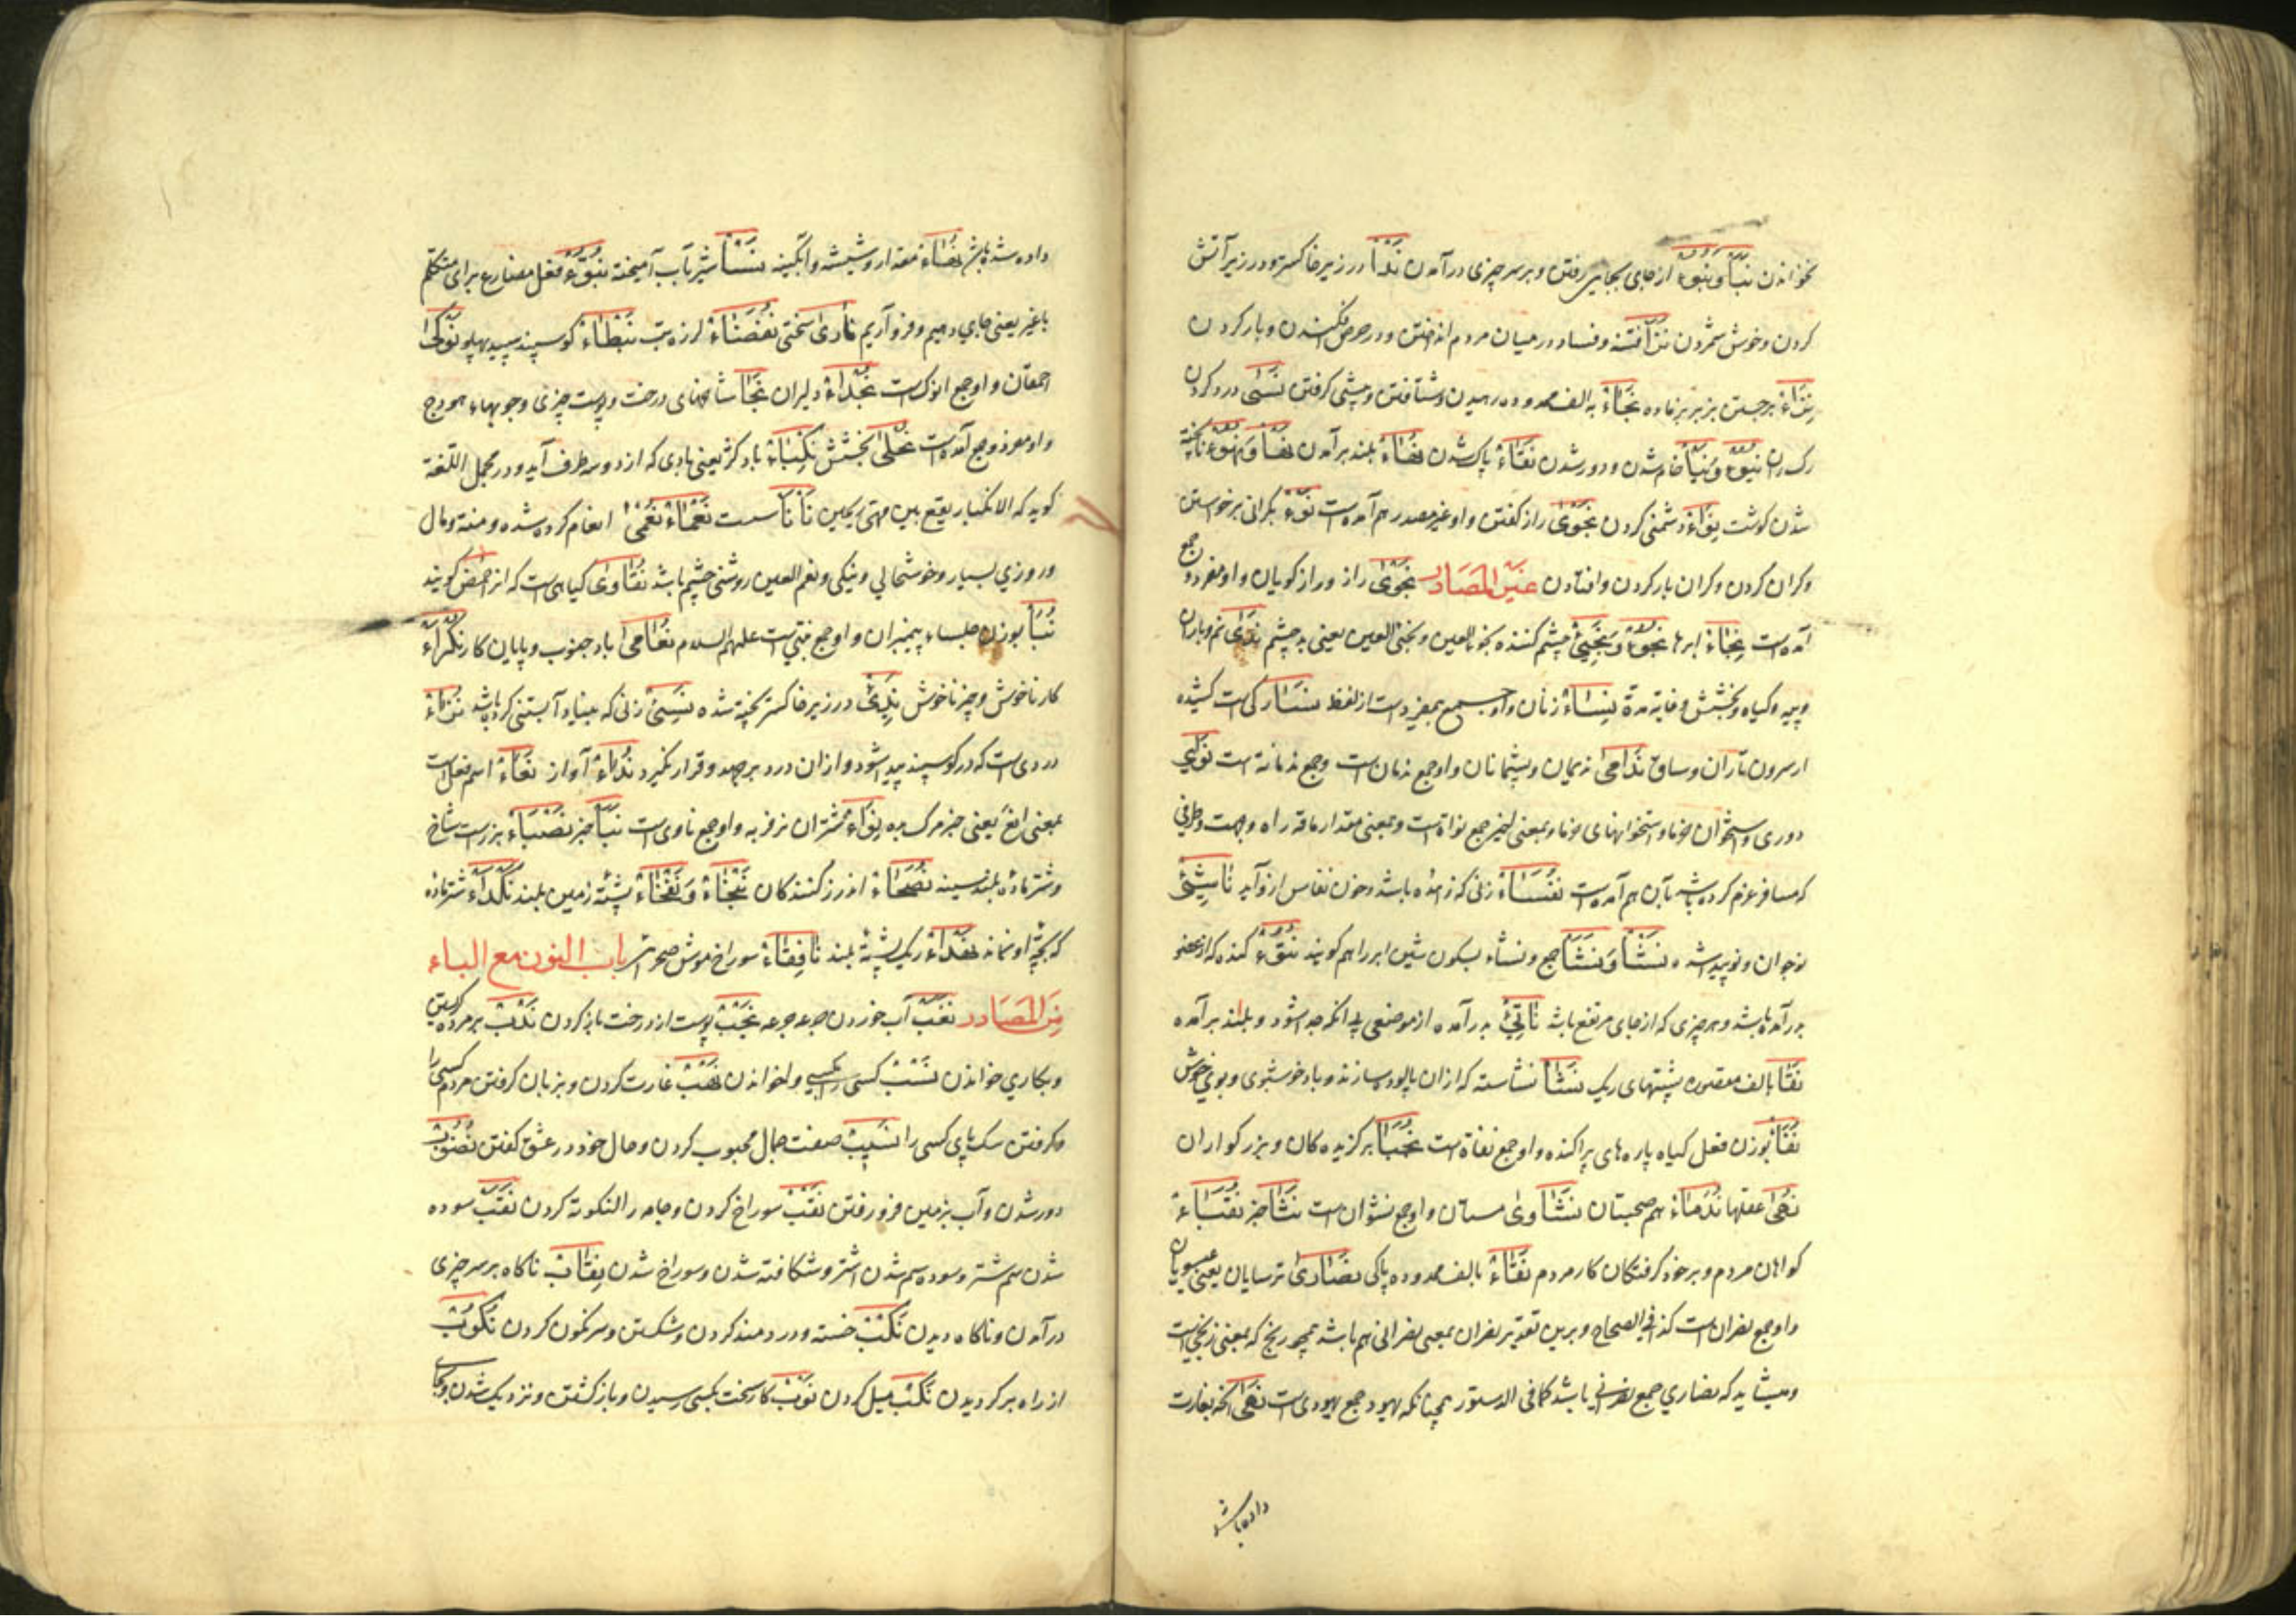 نخواندن نبأ و نبوء از جای بجایی رفتن و بر سر چیزی درآمدن ندأ در زیر خاکستر و در زیر آتش
کردن و خوش شمردن نزأ فتنه و فساد در میان مردم انداختن و در حرص فکندن و بار کردن
نزاء برجستن بز نر بر ماده نجاء به الف ممدوده رهیدن و شتافتن و پیشی گرفتن نسی درد کردن
رگ ران نیوء و نیأ خام شدن و دور شدن نقاء پاک شدن بلند برآمدن ناپخته
شدن گوشت نواء دشمنی کردن نجوی راز گفتن و او غیر مصدر هم آمده است نوء بگرانی برخواستن
و گران کردن و گران بار کردن و افتادن غیر المصادر نجوی راز و رازگویان و او مفرد و جمع
آمده است نجاء ابرها نجوء و نجیء چشم کننده نجوء العین و نجیء العین یعنی بد چشم ندی نم و باران
و پیه و گیاه و بخشش و غایة مدة نساء زنان و او جمع بی مفرد است از لفظ نسا رگی است کشیده
از سرون تا ران و ساق ندامی ندیمان و پشیمانان و او جمع ندمان است و جمع ندمانة است نوی
دوری و استخوان خرما و استخوانهای خرما و بمعنی اخیر جمع نواة است و بمعنی مقدار مافه راه و جهت و طرفی
که مسافر عزم کرده باشد بآن هم آمده است نفساء زنی که زاده باشد و خون نفاس ازو آید ناشیء
نوجوان و نو پیدا شده نشأ و نشأ جمع و نشاء بسکون شین ابر را هم گویند نتوء کنده که از عضو
برآمده باشد و هر چیزی که از جای مرتفع باشد ناتیء برآمده از موضعی بی آنکه جدا شود و بلند برآمده
نقا بالف مقصوره پشتهای ریگ نشا نشاسته که از آن پالوده سازند و باد خوشبوی و بوی خوش
نفأ بوزن فعل گیاه پاره های پراکنده و او جمع نفأة است نجبا برگزیدگان و بزرگواران
نهی عقلها ندماء هم صحبتان نشاوی مستان و او جمع نشوان است نثا خبر نقباء
گواهان مردم و برخود گرفتگان کار مردم نقاء بالف ممدوده پاکی نصاری ترسایان یعنی عیسویان
و او جمع نصران است کذا فی الصحاح و برین تقدیر نصران بمعنی نصرانی هم باشد همچو زنج که بمعنی زنجی است
و میشاید که نصاری جمع نصرانی باشد کما فی الدستور همچنانکه یهود جمع یهودی است نهی آنچه بغارت
داده باشد
داده شده باشد نهاء مقدار و شیشه و آبگینه نسأ شیر بآب آمیخته نبوء فعل مضارع برای متکلم
با غیر یعنی جای دهیم و فرو آریم نادی سختی نفضاء لرزه تب نبطاء گوسپند سپید پهلو نوکی
احمقان و او جمع انوک است نجداء دلیران نجا شاخهای درخت و پوست چیزی و چوبهاء هودج
و او مفرد و جمع آمده است نحلی بخشش نکباء باد کژ یعنی بادی که از دو سه طرف آید و در مجمل اللغة
گوید که الانکباء ریح یقع بین مهتی ریحین نأنأ سست نعماء نعمی انعام کرده شده و منة و مال
و روزی بسیار و خوشحالی و نیکی و نعم العین روشنی چشم باشد نقاوی گیاهی است که انرا حمض گویند
نبأ بوزن جلساء پیغمبران و او جمع نبی است علیهم السلام نعامی باد جنوب و پایان کار نکراء
کار ناخوش و چیز ناخوش ندیء در زیر خاکستر پخته شده نسیء زنی که بنیاد آبستنی کرده باشد نزاء
دردی است که در گوسپند پیدا شود و از آن درد برجهد و قرار نگیرد نداء آواز نعاء اسم فعل است
بمعنی انع یعنی خبر مرگ بده نواء شتران فربه و او جمع ناوی است نبأ خبر نصباء بز راست شاخ
و شتر ماده بلند سینه نصحاء اندرز کنندگان نبخاء و نفخاء پشته زمین بلند نکداء شتر ماده
که بچهٔ او نماند نقداء ریگ پشتهٔ بلند نافقاء سوراخ موش صحرائی باب النون مع الباء
من المصادر نغب آب خوردن جرعه جرعه نجب پوست از درخت باز کردن ندب بر مرده گریستن
و بکاری خواندن نسب کسی را بکسی واخواندن نهب غارت کردن و بزبان گرفتن مردم کسی را
و گرفتن سگ پای کسی را نسیب صفت جمال محبوب کردن و حال خود در عشق گفتن نضوب
دور شدن و آب بزمین فرو رفتن نقب سوراخ کردن و جامه را النکوته کردن نقب سوده
شدن سم شتر و سوده سم شدن اشتر و شکافته شدن و سوراخ شدن نقاب ناگاه بر سر چیزی
درآمدن و ناگاه دیدن نکب خسته و دردمند کردن و شکستن و سرنگون کردن نکوب
از راه برگردیدن نکب میل کردن نوب کار سخت بکسی رسیدن و بازگشتن و نزدیک شدن و بجا